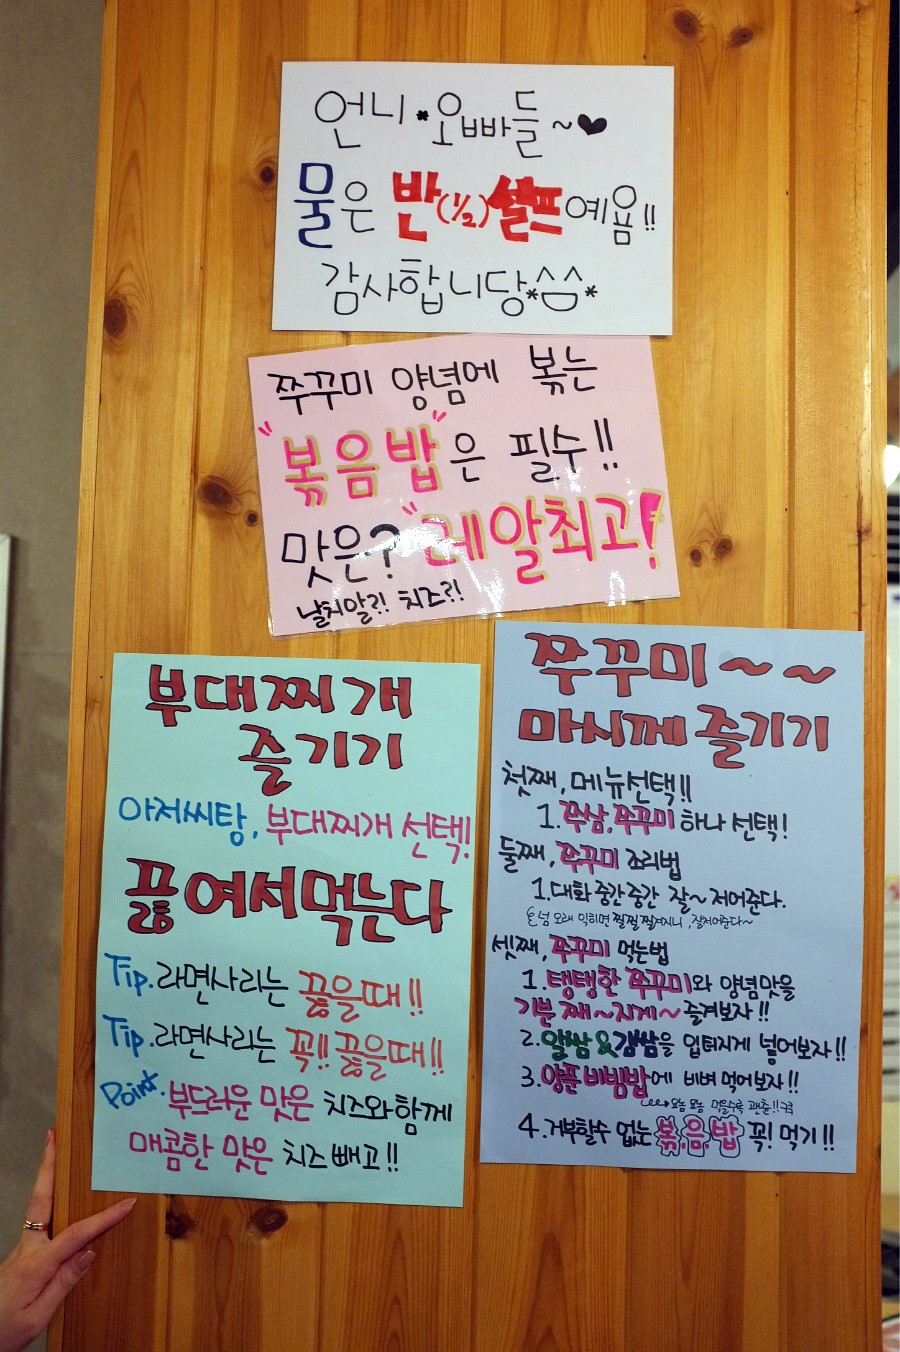 언니*오빠들~♥
물은 반(1/2)셀프예욤!!
감사합니당*^^*
쭈꾸미 양념에 볶는
"볶음밥"은 필수!!
맛은? "레알최고!
날치알?! 치즈?!
부대찌개
즐기기
아저씨탕, 부대찌개 선택!
끓여서먹는다
Tip. 라면사리는 끓을때!!
Tip. 라면사리는 꼭!! 끓을때!!
Point. 부드러운 맛은 치즈와함께
매콤한 맛은 치즈빼고!!
쭈꾸미~~
마시께즐기기
첫째, 메뉴선택!!
1. 쭈삼, 쭈꾸미 하나 선택!
둘째, 쭈꾸미 조리법
1. 대화 중간중간 잘~저어준다.
넘 오래 익히면 찔찔찔겨지니, 잘저어준다~
셋째, 쭈꾸미 먹는법
1. 탱탱한 쭈꾸미와 양념맛을
기분 째~지게~ 즐겨보자!!
2. 알쌈&갬쌈을 입터지게 넣어보자!!
3. 양푼비빔밥에 비벼 먹어보자!!
먹을수록 괜츈!!
4. 거부할수 없는 볶.음.밥 꼭! 먹기!!